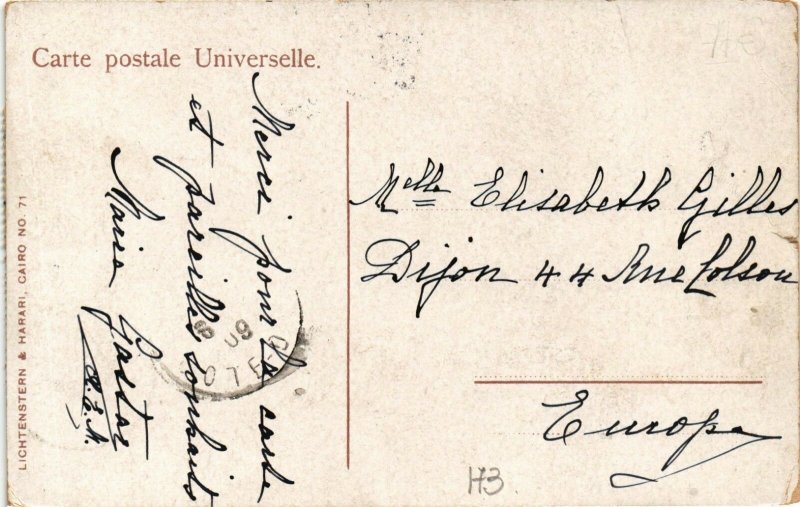 Carte postale Universelle.
Merci pour la carte
et pareilles souhaits
Maria
LICHTENSTERN & HARARI, CAIRO NO. 71
Melle Elisabeth Gilles
Dijon 44 Rue Colson
Europa
143